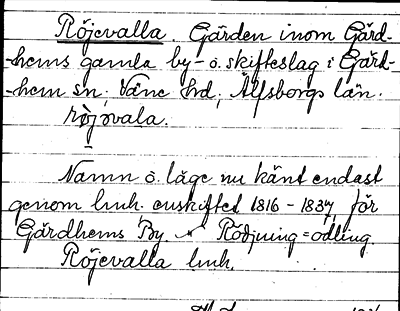 Röjevalla. Gärden inom Gärd-
-hems gamla by- o. skifteslag i Gärd-
-hem sn; Väne hd; Älfsborgs län.
röjövala.
Namn o. läge nu känt endast
genom lmh. enskiftet 1816 - 1837, för
Gärdhems By. Rödjning = odling.
Röjevalla lmh.